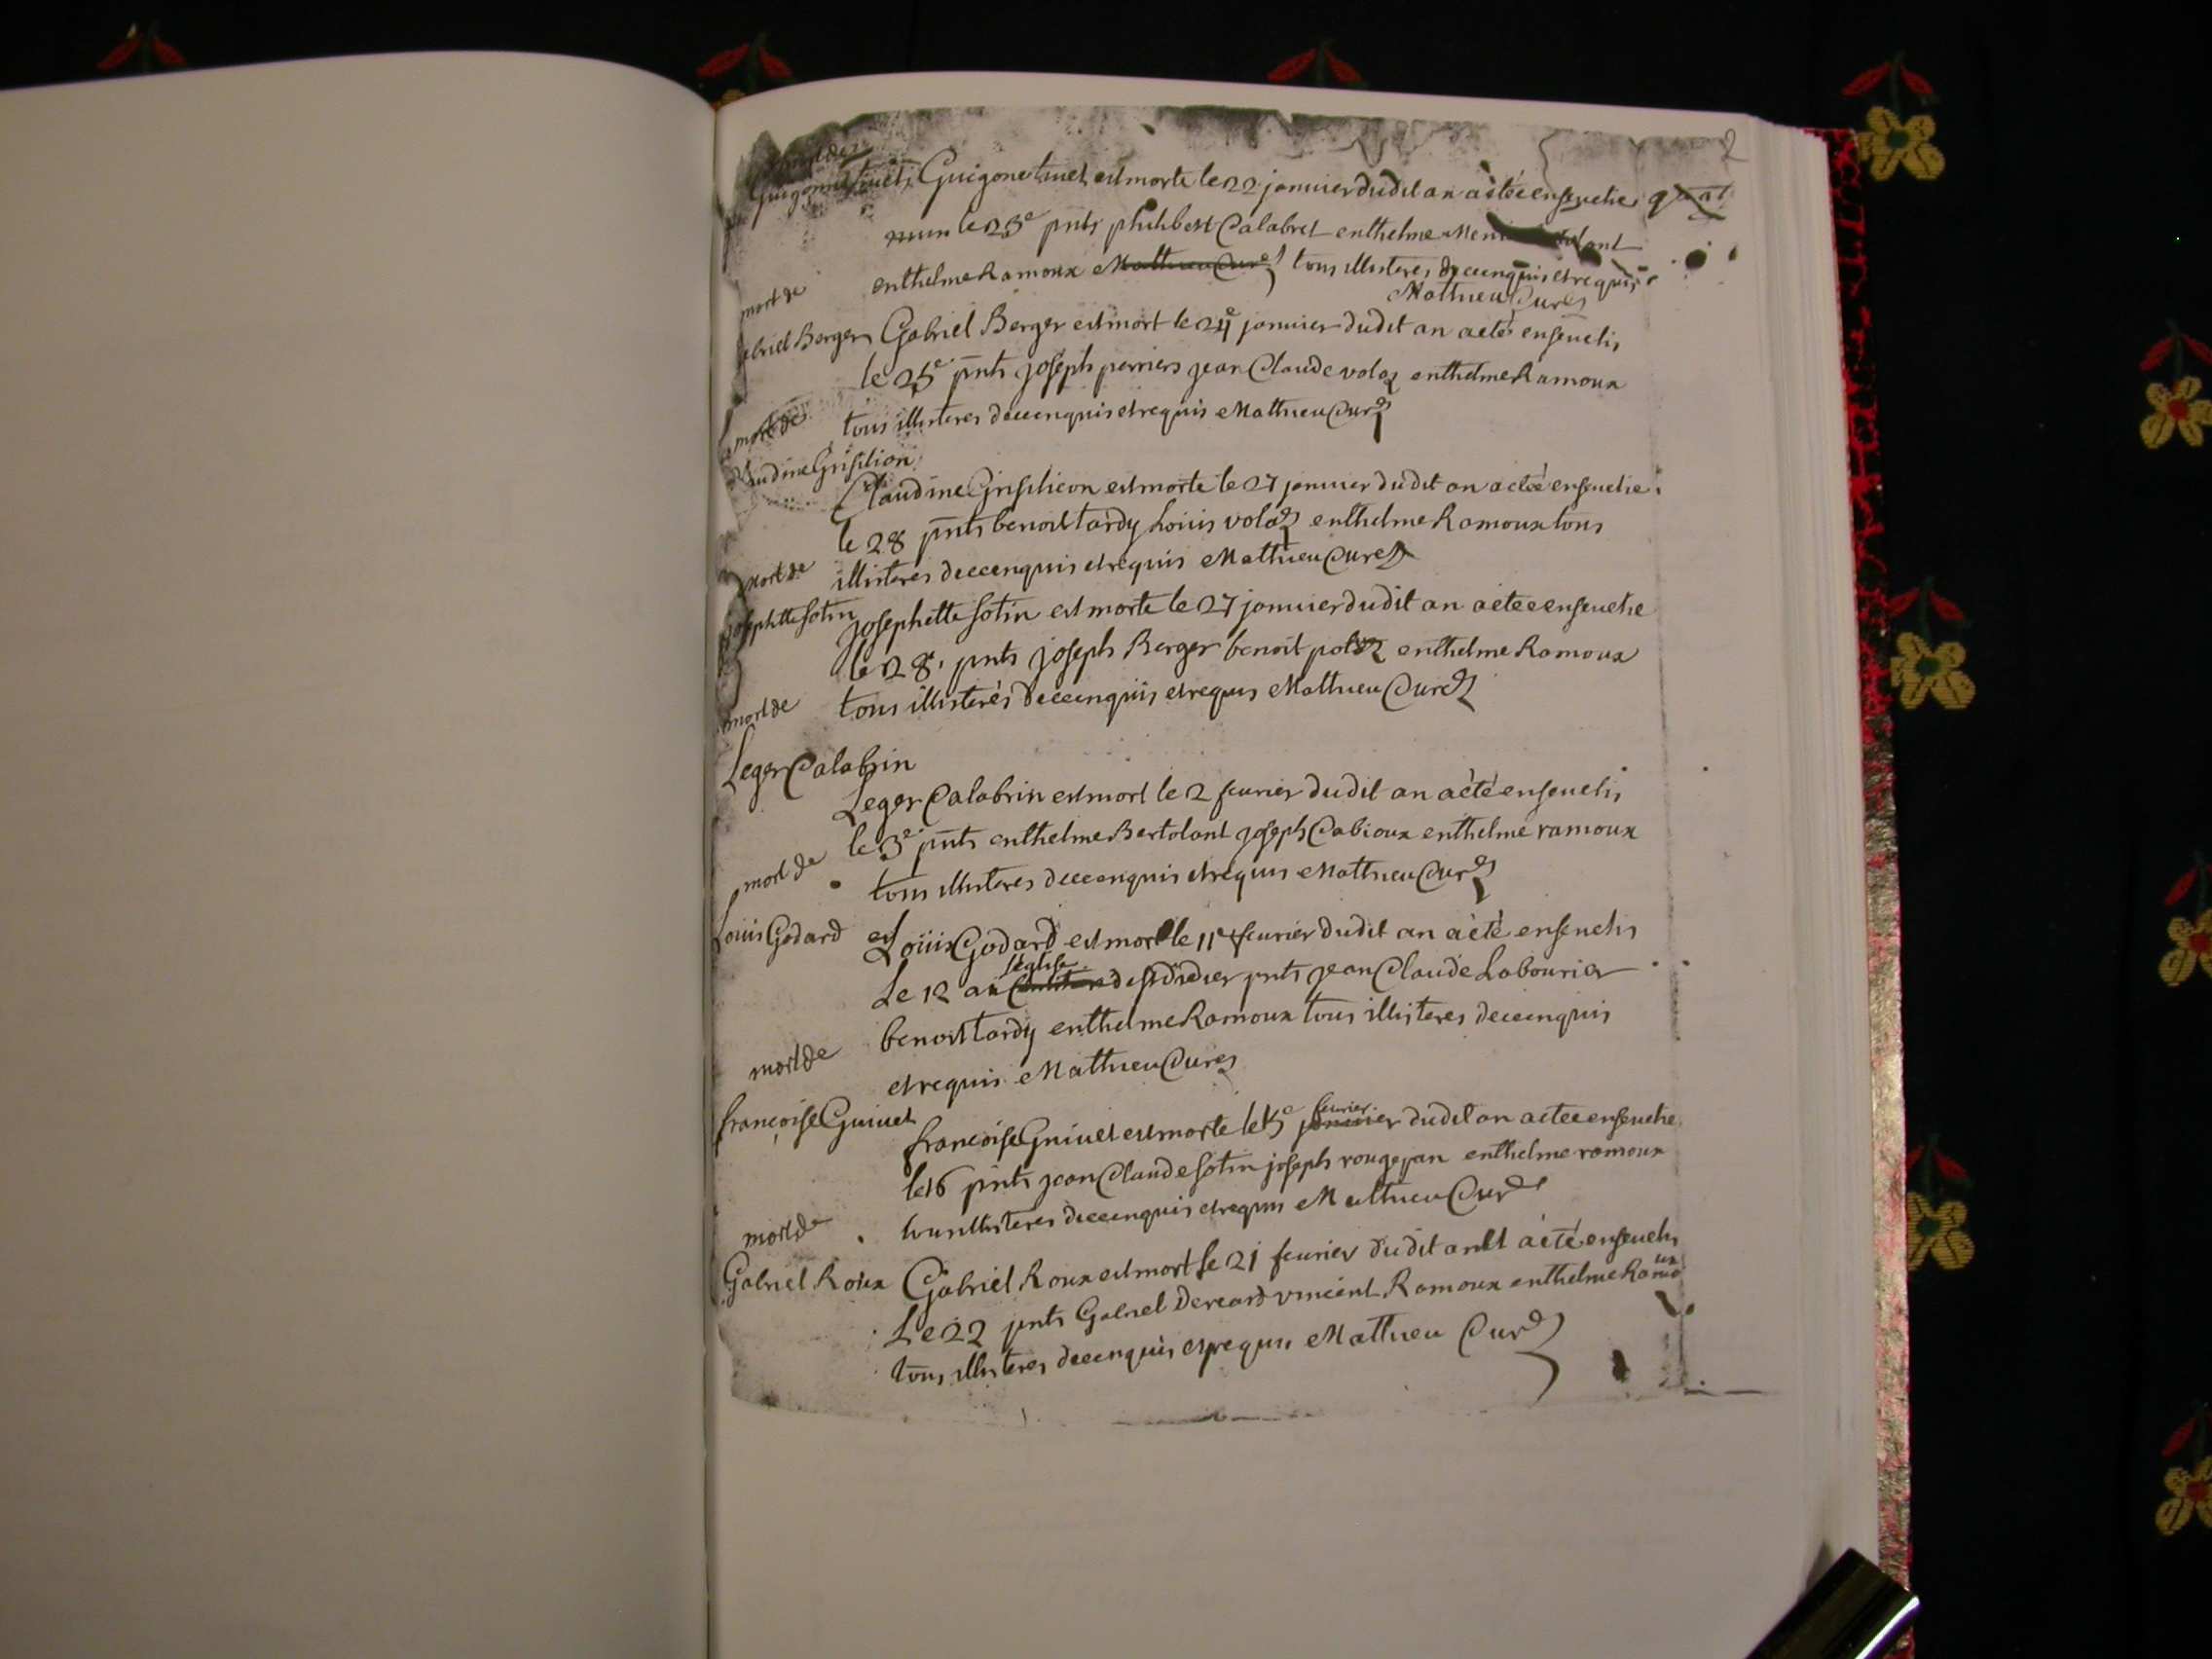 2
mort de
Guigone tuet Guigone tuet est morte le 22 janvier dudit an a étée ensevelie
le 23e pnts philibert Calabret enthelme
enthelme Ramoux Mathieu Curé tous illisteres de ce enquis et requis
Mathieu Curé
mort de
abriel Berger Gabriel Berger est mort le 24e januier dudit an aeté enseueli
le 25e pnts joseph perriers jean Claude volaz enthelme Ramoux
tous illisteres de ce enquis et requis Mathieu Curé
mort de
Claudine Grisilion
Claudine Grisilieon est morte le 27 januier dudit an aetée enseuelie
le 28 pnts benoit tardy Loüis volaz enthelme Ramoux tous
illisteres de ce enquis et requis Mathieu Curé
mort de
josephtte sotin josephette sotin est morte le 27 januier dudit an aetee enseuelie
le 28e pnts joseph Berger benoit enthelme Ramoux
tous illisterés de ce enquis et requis Mathieu Curé
mort de
Leger Calabrin
Leger Calabrin est mort le 2 feurier dudit an aété enseueli
le 3e pnts enthelme Bertolant joseph Cabioux enthelme ramoux
mort de
tous illisteres de ce enquis et requis Mathieu Curé
Loüis Godard Loüis Godard est mort le 11e feurier dudit an aété enseueli
l'église
Le 12 a de st didier pnts jean Claude Labourier
benoit tardy enthelme Ramoux tous illisteres de ce enquis
mort de
et requis Mathieu Curé
françoise Guiuet
feurier
françoise Guiuet est morte le 15e januier dudit an aetee enseuelie
le 16 pnts jean Claude sotin joseph rougejan enthelme ramoux
tous illisteres de ce enquis et requis Mathieu Curé
mort de
Gabriel Roux Gabriel Roux est mort le 21 feurier dudit an aété enseueli
Le 22 pnts Gabriel Dereard vincent Ramoux enthelme Ramoux
tous illisteres de ce enquis et requis Mathieu Curé